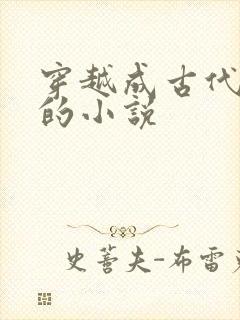 穿越成古代
的小说
史蒂夫-布雷